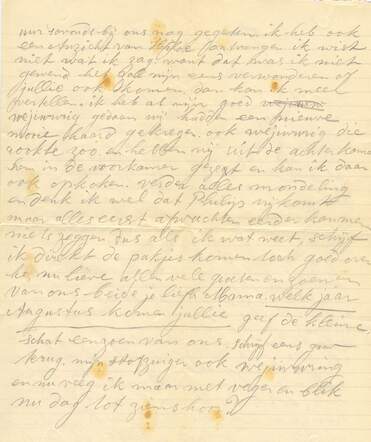 uur savonds bij ons nog gegeten. ik heb ook
een anzicht van ontvangen ik wist
niet wat ik zag. want dat was ik niet
gewend het zal mijn eens verwonderen of
jullie ook komen dan kan ik meel
vertellen. ik heb al mijn goed
weijnwrig gedaan wij hadden een nieuwe
mooie haard gekregen. ook die
rookte zoo. en hebben wij uit de achterkamer
hem in de voorkamer gezet en kan ik daar
ook opkoken. verder alles mondeling
en denk ik wel dat Philip vrijkomt
maar alles eerst afwachten eerder kan men
niets zeggen dus als ik wat weet, schrijf
ik direkt de pakjes komen toch goed over
he, nu liève allen vele groeten en zoenen
van ons beide je liefh. Mama, welk jaar
Augustus komen jullie geef de kleine
schat een zoen van ons. schrijf eens gauw
terug. mijn stofzuiger ook
en nu veeg ik maar met veger en blik
nu dag tot ziens hoor